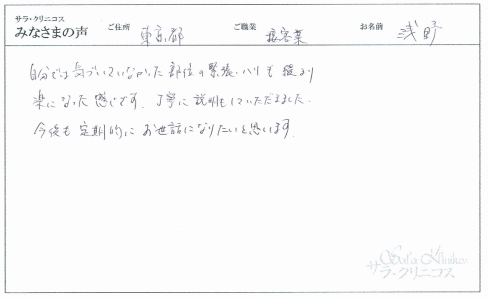 サラ・クリニコス
みなさまの声 ご住所 東京都 ご職業 接客業 お名前 浅野
自分では気づいていなかった部位の緊張、ハリも 後より
楽になった感じです。丁寧に説明もしていただきました。
今後も定期的にお世話になりたいと思います。
Sara Kliniko
サラ・クリニコス